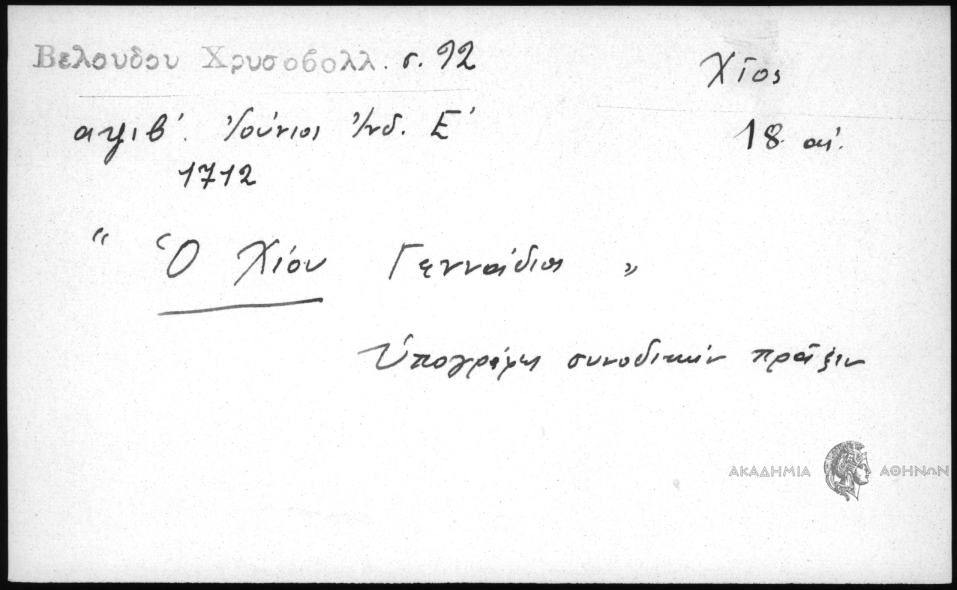 Βελουδου Χρυσοβολλ. σ. 92
Χῖος
αψιβ΄. Ἰούνιος Ἰνδ. Ε΄
18 αἰ.
1712
“ Ὁ Χίου Γεννάδιος „
Ὑπογράφει συνοδικὴν πρᾶξιν
ΑΚΑΔΗΜΙΑ ΑΘΗΝΩΝ